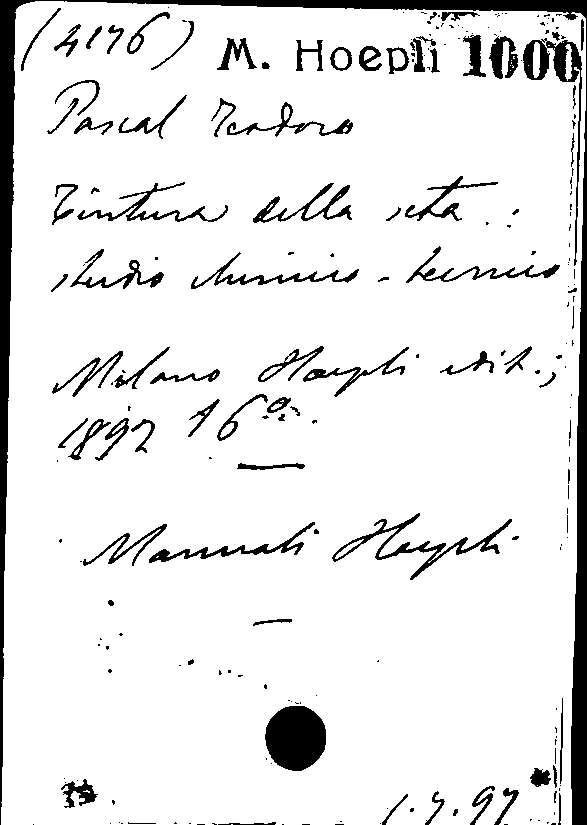 (4176) M. Hoepli 1000
Pascal Teodoro
Tintura della seta :
studio chimico - tecnico
Milano Hoepli edit.;
1892 16º.
Manuali Hoepli
1.7.97